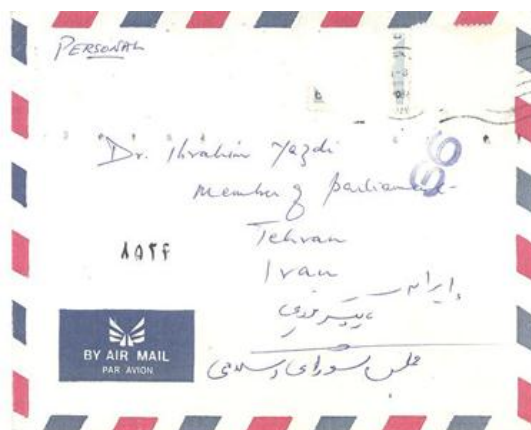 PERSONAL
Dr. Ibrahim Yazdi
Member of parliament
Tehran
Iran
ایران
مجلس شورای اسلامی
BY AIR MAIL
PAR AVION